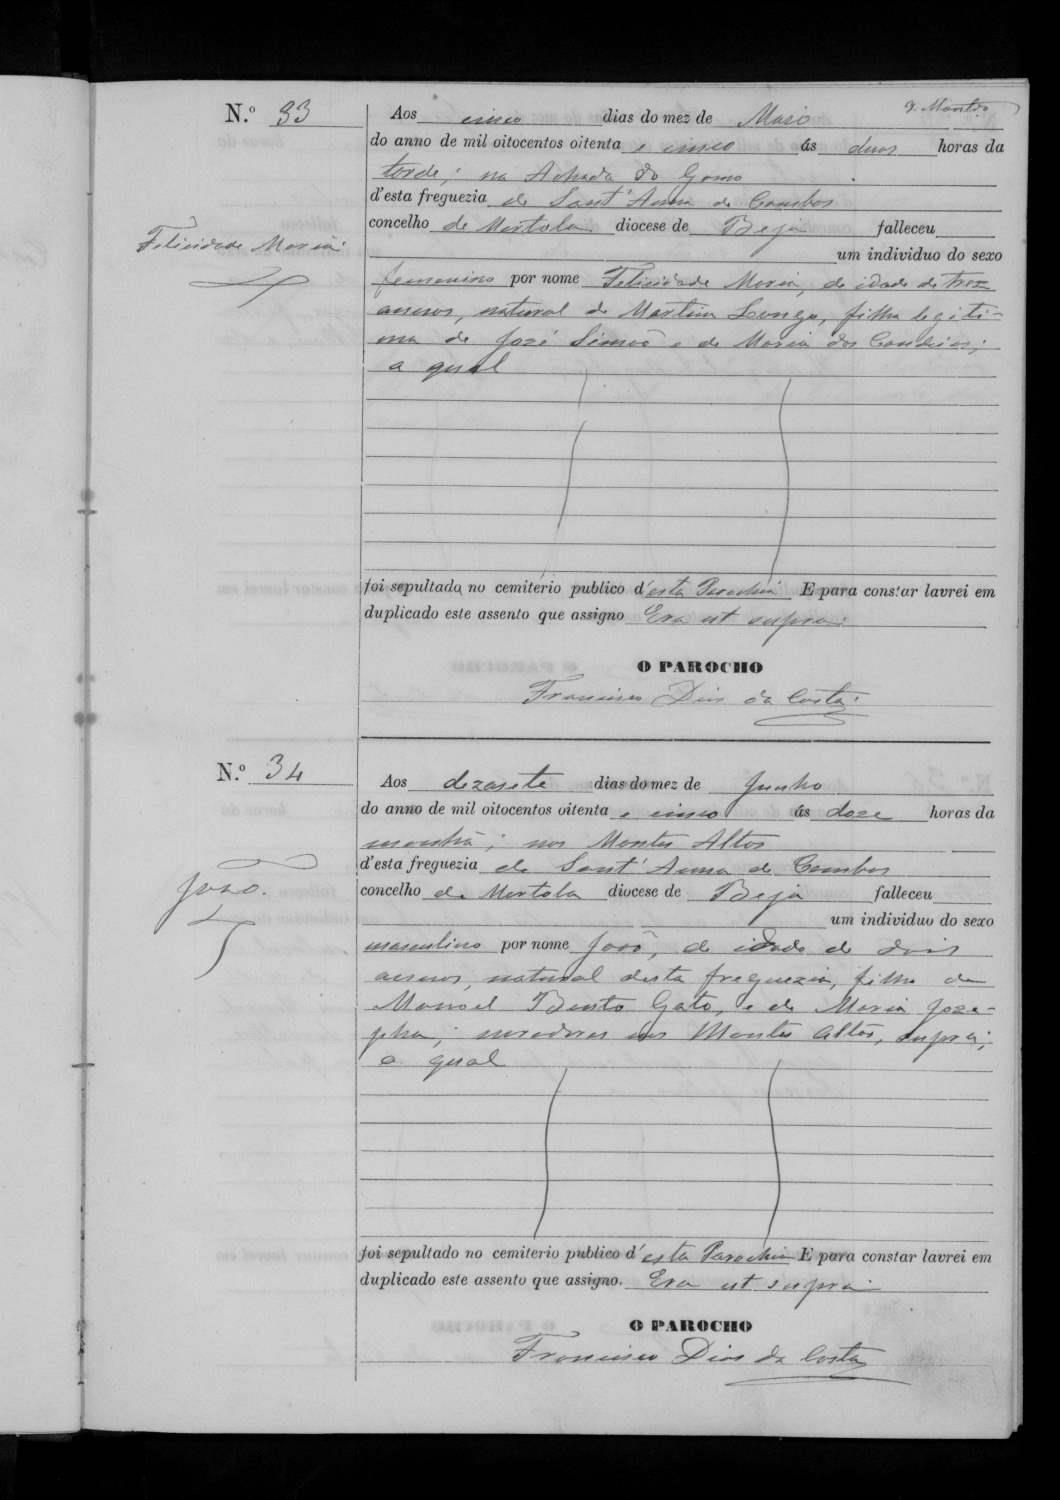 N.º 33
Felicidade Maria
Aos cinco dias do mez de Maio
do anno de mil oitocentos oitenta e cinco ás duas horas da
tarde; na Achada do Gamo
d'esta freguezia de Sant'Anna de Cambas
concelho de Mertola diocese de Beja falleceu
um individuo do sexo
femenino por nome Felicidade Maria, de idade de trez
annos, natural de Martim Longo, filha legiti-
ma de José Simão e de Maria das Candeias;
a qual
foi sepultada no cemiterio publico d'esta Parochia E para constar lavrei em
duplicado este assento que assigno Era ut supra.
O PAROCHO
Francisco Dias da Costa.
N.º 34
João.
Aos dezasete dias do mez de Junho
do anno de mil oitocentos oitenta e cinco ás doze horas da
manhã; nos Montes Altos
d'esta freguezia de Sant'Anna de Cambas
concelho de Mertola diocese de Beja falleceu
um individuo do sexo
masculino por nome João, de idade de dois
annos, natural desta freguezia, filho de
Manoel Bento Gato, e de Maria Joze-
pha; moradores nos Montes Altos, supra;
o qual
foi sepultado no cemiterio publico d'esta Parochia E para constar lavrei em
duplicado este assento que assigno. Era ut supra.
O PAROCHO
Francisco Dias da Costa